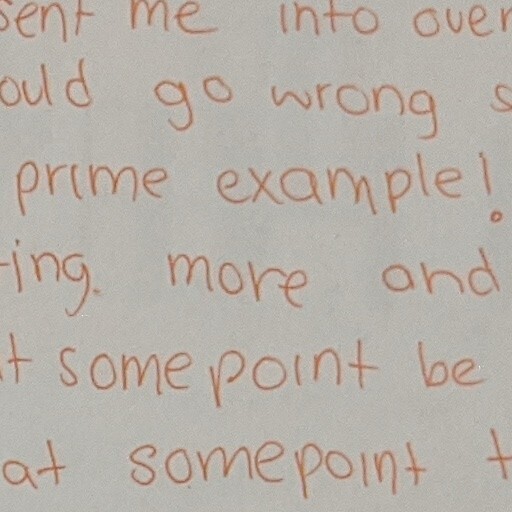 sent me into over
ould go wrong s
prime example!
ing. more and
t somepoint be
at somepoint t